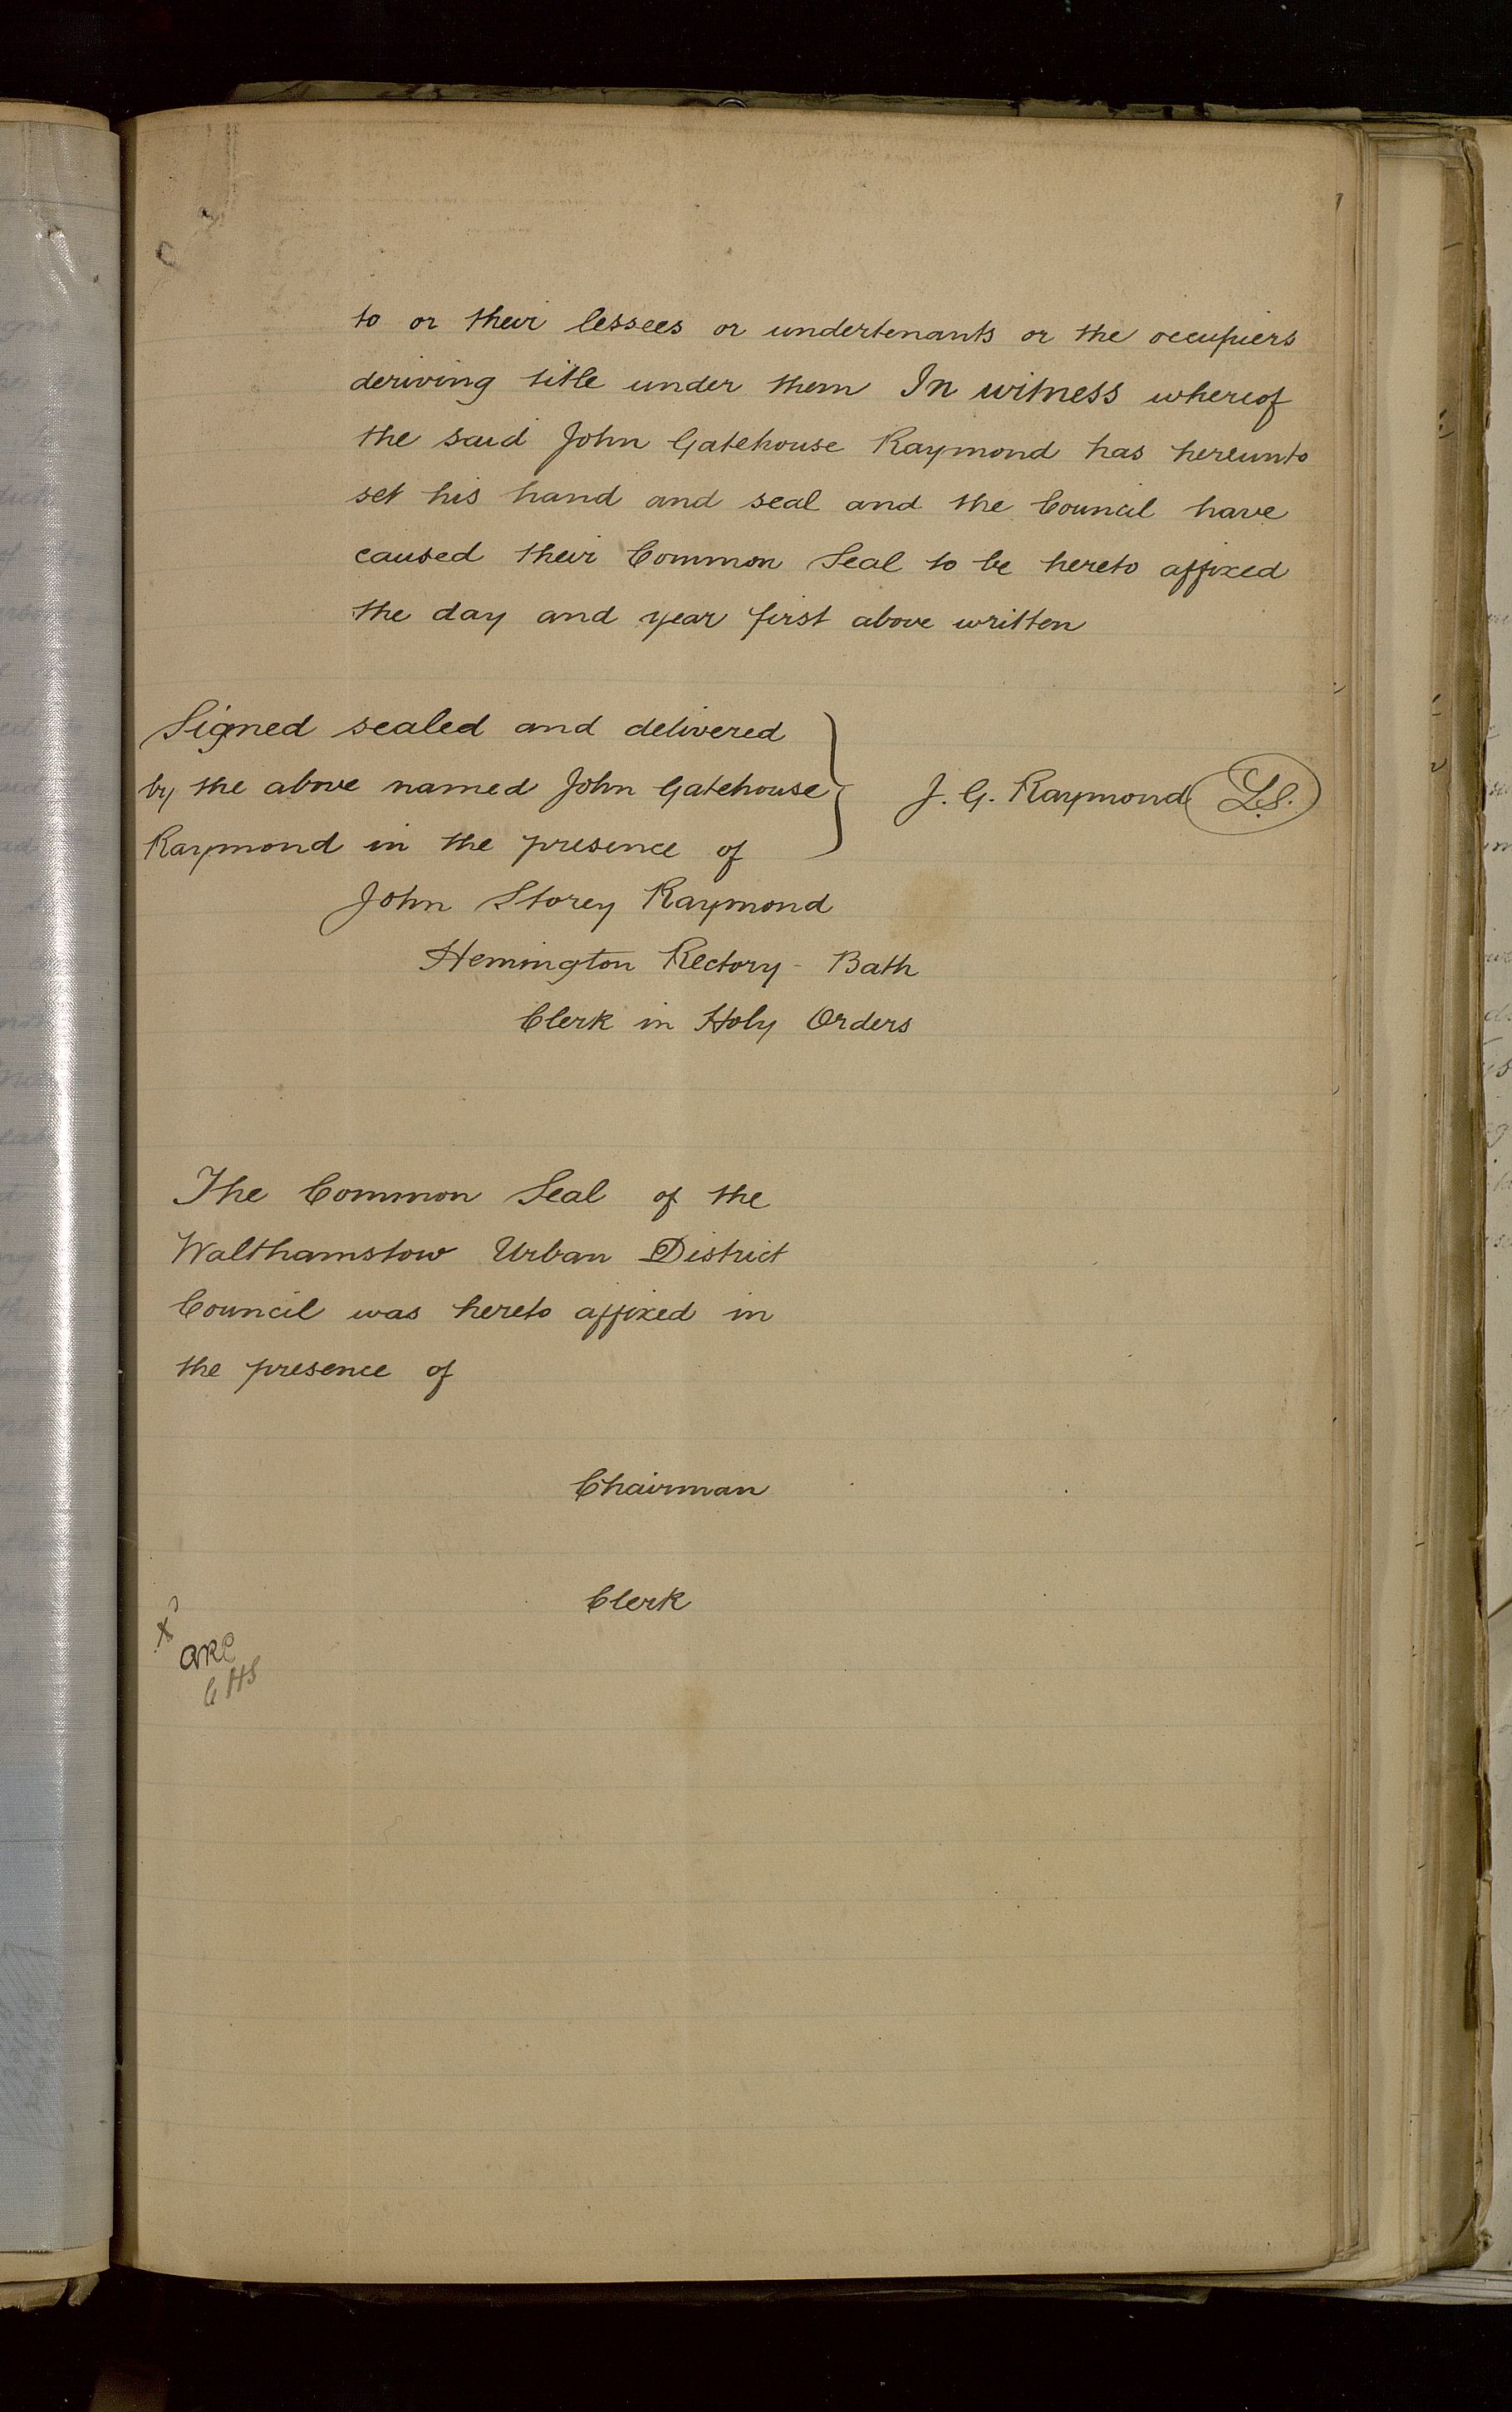 to or their lessees or undertenants or the occupiers
deriving title under them In witness whereof
the said John Gatehouse Raymond has hereunto
set his hand and seal and the Council have
caused their Common Seal to be hereto affixed
the day and year first above written
Signed sealed and delivered
by the above named John Gatehouse
Raymond in the presence of
J. G. Raymond L.S.
John Storey Raymond
Hemington Rectory - Bath
Clerk in Holy Orders
The Common Seal of the
Walthamstow Urban District
Council was hereto affixed in
the presence of
Chairman
Clerk